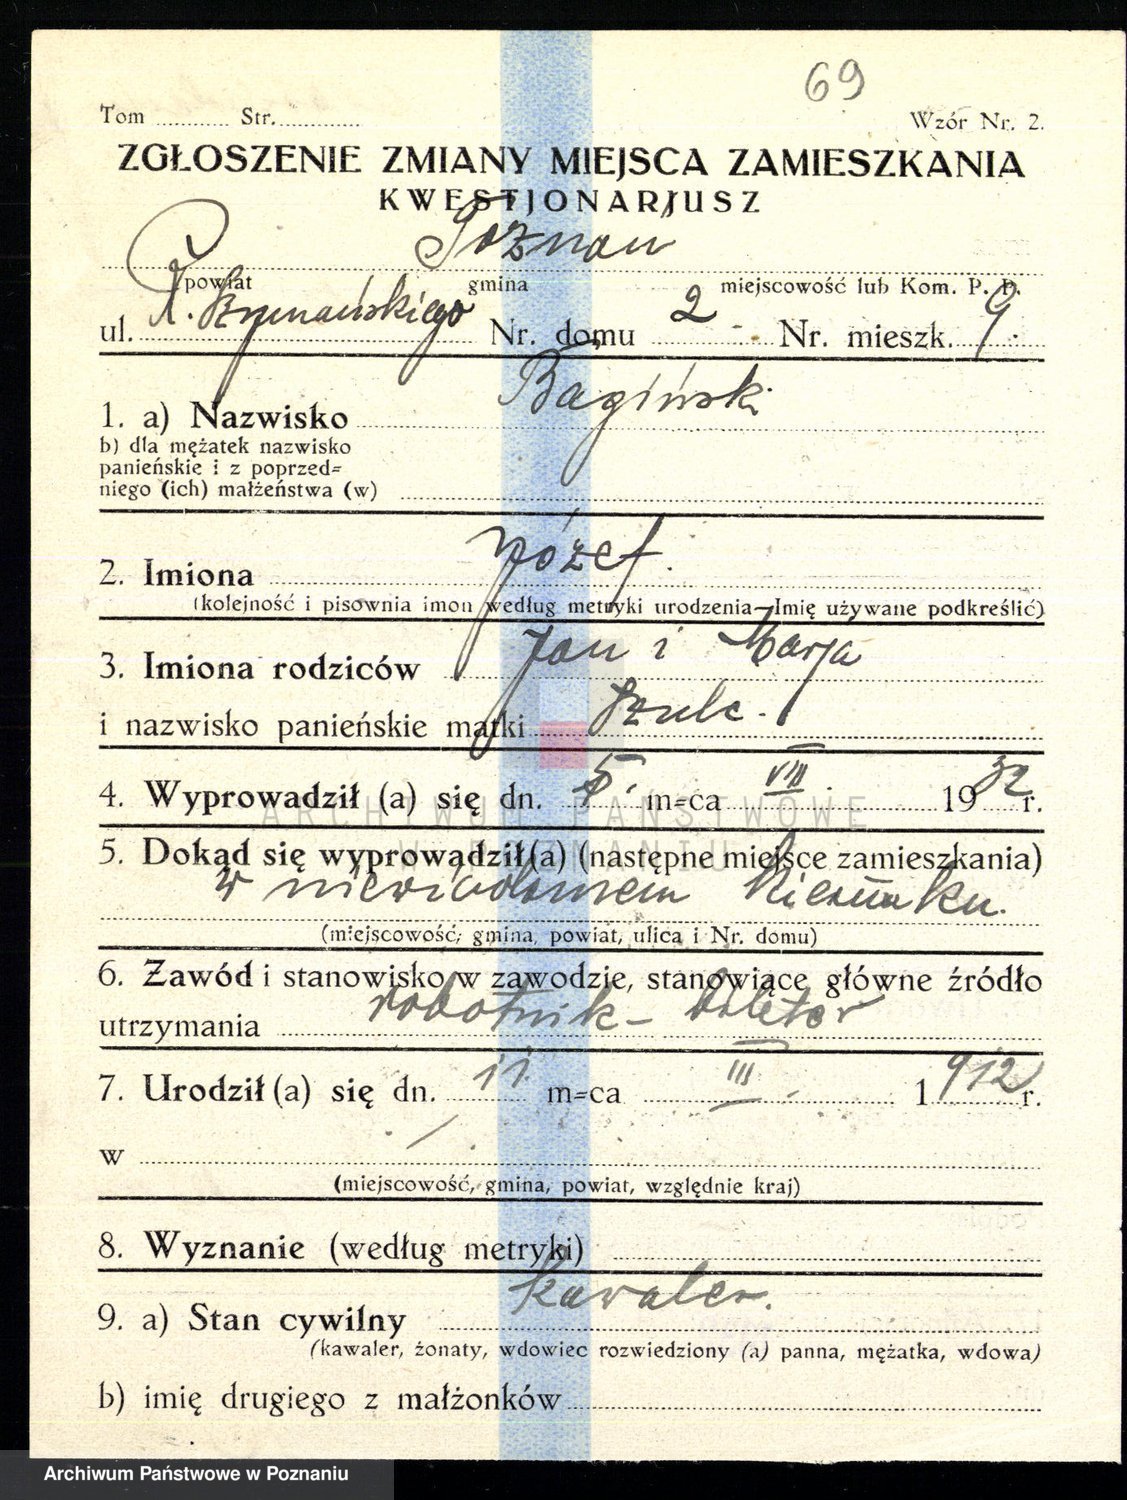 69
Tom ............ Str. ............ Wzór Nr. 2.
ZGŁOSZENIE ZMIANY MIEJSCA ZAMIESZKANIA
KWESTJONARJUSZ
Poznań
powiat gmina miejscowość lub Kom. P. P.
ul. Szymańskiego Nr. domu 2 Nr. mieszk. 9
1. a) Nazwisko Bagiński
b) dla mężatek nazwisko
panieńskie i z poprzed=
niego (ich) małżeństwa (w)
2. Imiona Józef.
(kolejność i pisownia imon według metryki urodzenia—Imię używane podkreślić)
3. Imiona rodziców Jan i Marja
i nazwisko panieńskie matki Szulc.
4. Wyprowadził (a) się dn. 5. m=ca VIII. 1932 r.
5. Dokąd się wyprowadził(a) (następne miejsce zamieszkania)
w niewiadomem kierunku.
(miejscowość, gmina, powiat, ulica i Nr. domu)
6. Zawód i stanowisko w zawodzie, stanowiące główne źródło
utrzymania robotnik -
7. Urodził (a) się dn. 11. m=ca III. 1912 r.
w /
(miejscowość, gmina, powiat, względnie kraj)
8. Wyznanie (według metryki)
9. a) Stan cywilny kawaler.
(kawaler, żonaty, wdowiec rozwiedziony (a) panna, mężatka, wdowa)
b) imię drugiego z małżonków
ARCHIWUM PAŃSTWOWE
W POZNANIU
Archiwum Państwowe w Poznaniu